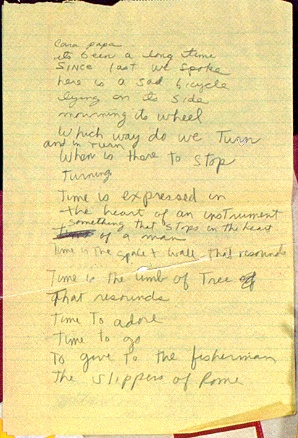 Cara papa
its been a long time
SINCE last we spoke
here is a sad bicycle
lying on its side
mourning its wheel
Which way do we Turn
and in Turn
When is there to stop
Turning
Time is expressed in
the heart of an instrument
something that stops in the heart
of a man
Time is the space + wall that resounds
Time is the limb of Tree
That resounds
Time To adore
Time to go
To give to the fisherman
The slippers of Rome